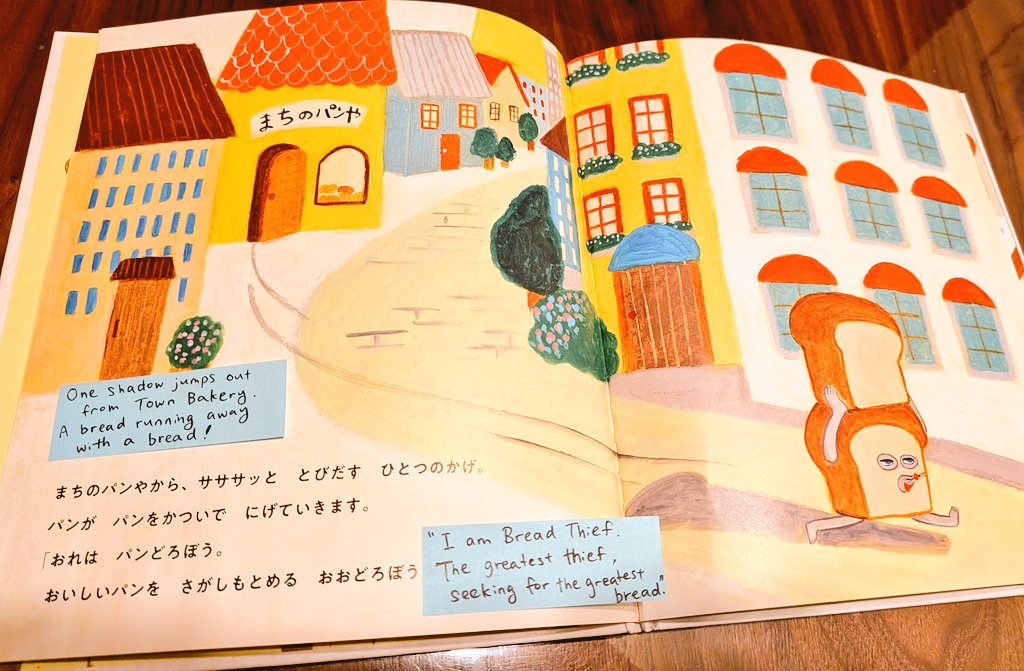 まちのパンや
One shadow jumps out
from Town Bakery.
A bread running away
with a bread!
まちのパンやから、サササッと　とびだす　ひとつのかげ。
パンが　パンをかついで　にげていきます。
「おれは　パンどろぼう。
おいしいパンを　さがしもとめる　おおどろぼう
"I am Bread Thief.
The greatest thief,
seeking for the greatest
bread."